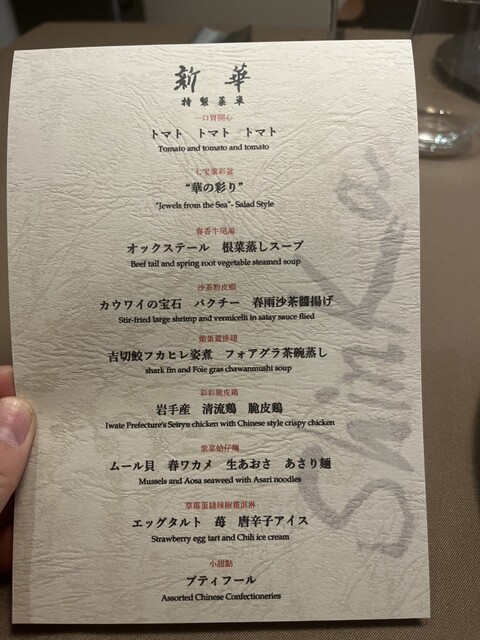 新華
特製菜単
一口胃開心
トマト トマト トマト
Tomato and tomato and tomato
七宝華彩盆
“華の彩り”
“Jewels from the Sea”- Salad Style
春香牛尾湯
オックステール 根菜蒸しスープ
Beef tail and spring root vegetable steamed soup
沙茶粉皮蝦
カウワイの宝石 パクチー 春雨沙茶醬揚げ
Stir-fried large shrimp and vermicelli in satay sauce flied
排翅
吉切鮫フカヒレ姿煮 フォアグラ茶碗蒸し
shark fin and Foie gras chawanmushi soup
彩彩脆皮鶏
岩手産 清流鶏 脆皮鶏
Iwate Prefecture's Seiryu chicken with Chinese style crispy chicken
紫菜蛤仔麺
ムール貝 春ワカメ 生あおさ あさり麺
Mussels and Aosa seaweed with Asari noodles
草莓蛋撻辣椒霜淇淋
エッグタルト 苺 唐辛子アイス
Strawberry egg tart and Chili ice cream
小甜點
プティフール
Assorted Chinese Confectioneries
Shinka